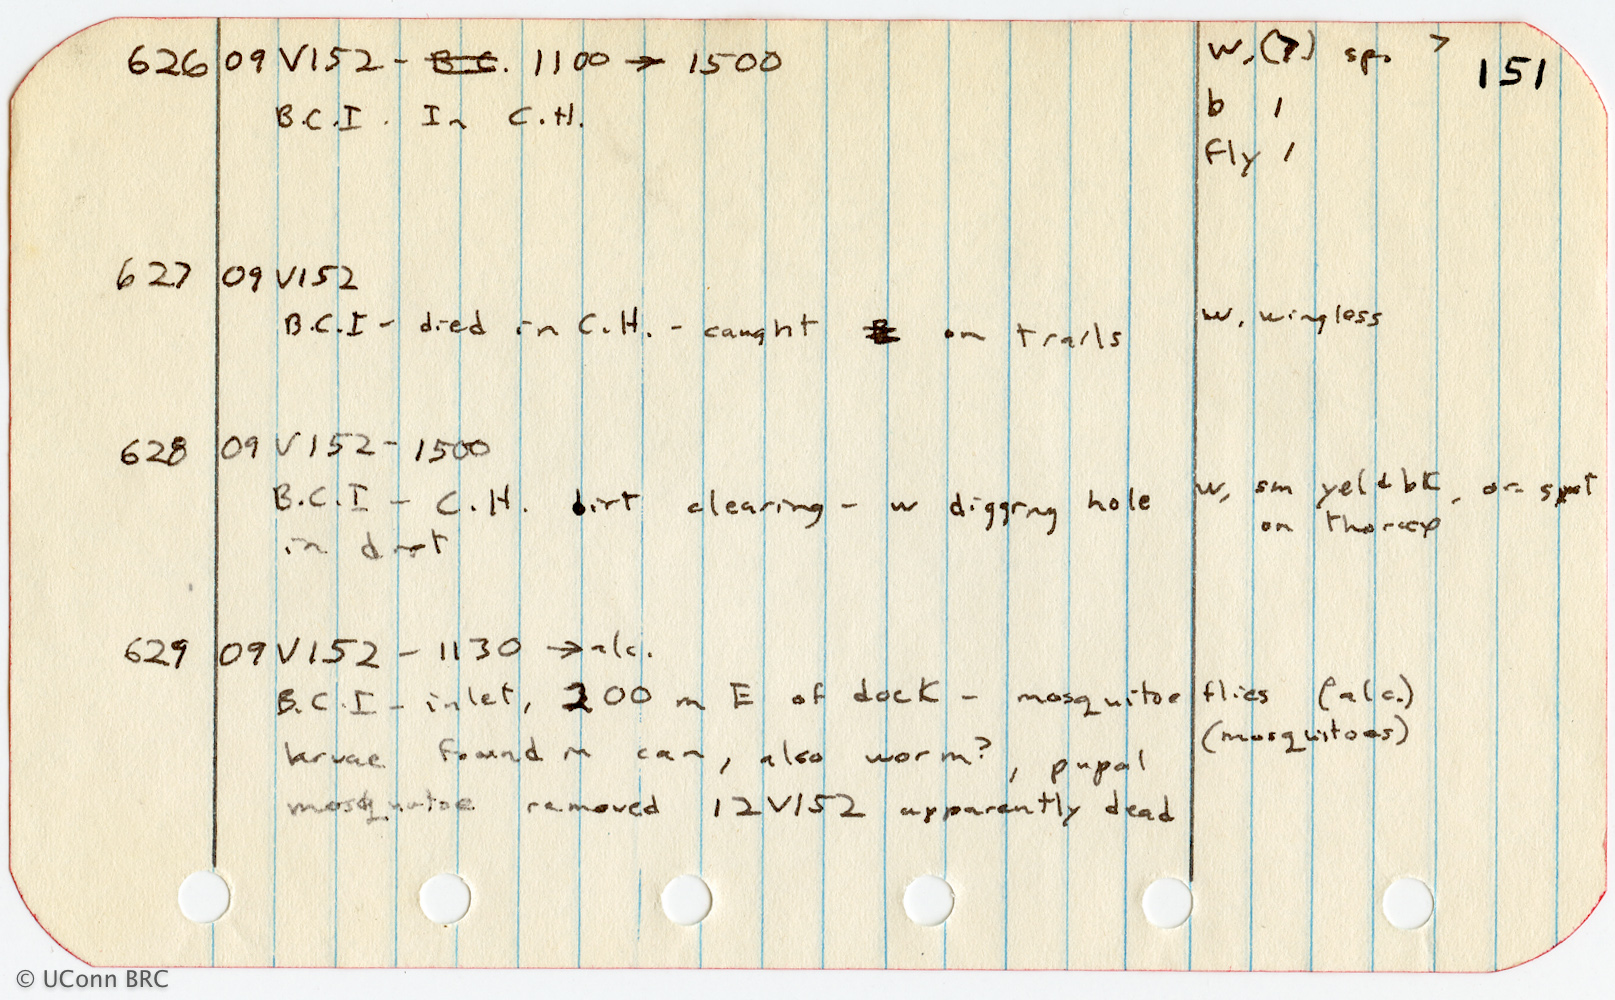 151
626 09 VI52 - B.C. 1100 → 1500 w, (7) sp. 7
B.C.I. In C.H. b 1
fly 1
627 09 VI52
B.C.I - died in C.H. - caught on trails w, wingless
628 09 VI52 - 1500
B.C.I - C.H. dirt clearing - w digging hole w, sm yel & bk, or spot
in dirt on thorax
629 09 VI52 - 1130 → alc.
B.C.I - inlet, 200 m E of dock - mosquitoe flies (alc.)
larvae found in can, also worm?, pupal (mosquitoes)
mosquitoe removed 12 VI52 apparently dead
© UConn BRC